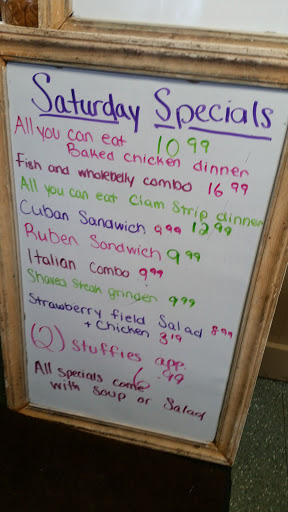 Saturday Specials
All you can eat 10 99
Baked chicken dinner
Fish and wholebelly combo 16 99
All you can eat Clam Strip dinner
12 99
Cuban Sandwich 9 99
Ruben Sandwich 9 99
Italian Combo 9 99
Shaved Steak grinder 9 99
Strawberry field Salad 8 99
+ Chicken 3 19
(2) Stuffies app.
6.99
All Specials come
with Soup or Salad